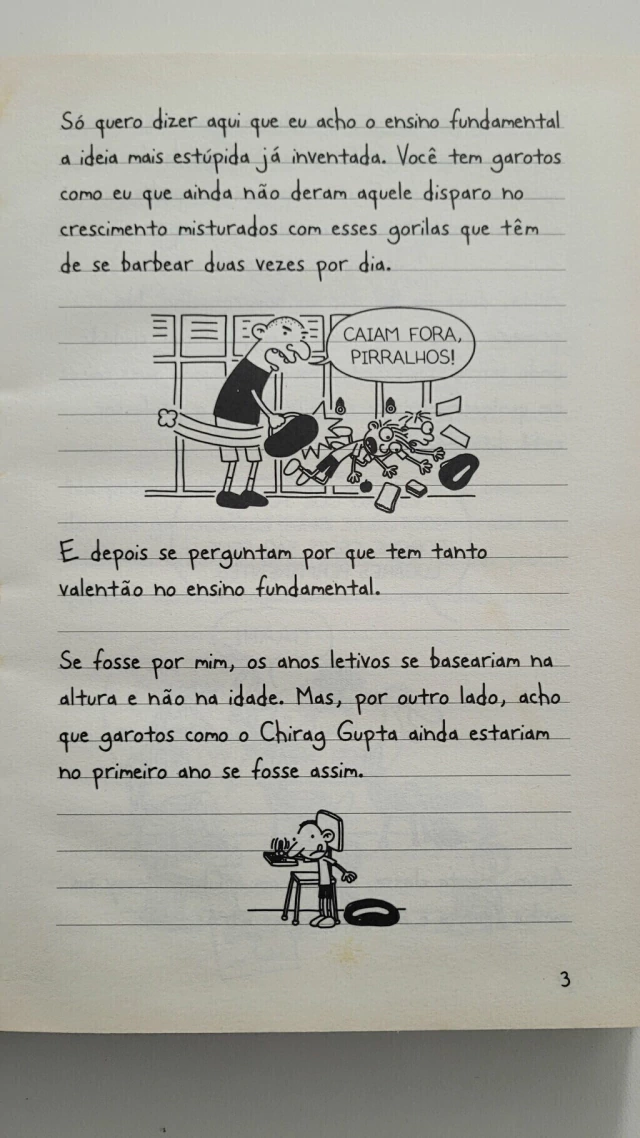 Só quero dizer aqui que eu acho o ensino fundamental
a ideia mais estúpida já inventada. Você tem garotos
como eu que ainda não deram aquele disparo no
crescimento misturados com esses gorilas que têm
de se barbear duas vezes por dia.
CAIAM FORA,
PIRRALHOS!
E depois se perguntam por que tem tanto
valentão no ensino fundamental.
Se fosse por mim, os anos letivos se baseariam na
altura e não na idade. Mas, por outro lado, acho
que garotos como o Chirag Gupta ainda estariam
no primeiro ano se fosse assim.
3